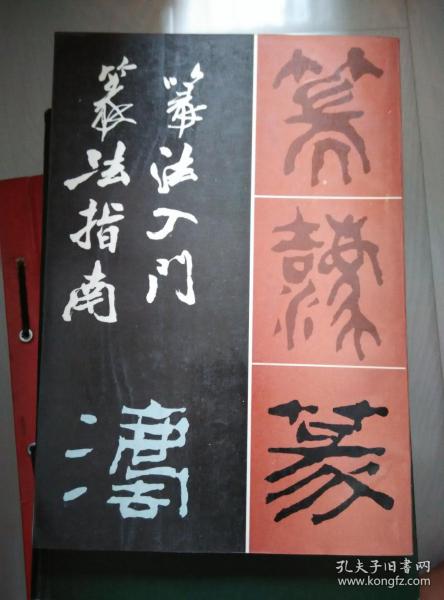 篆法入门
篆法指南
篆
篆
灋
孔夫子旧书网
www.kongfz.com